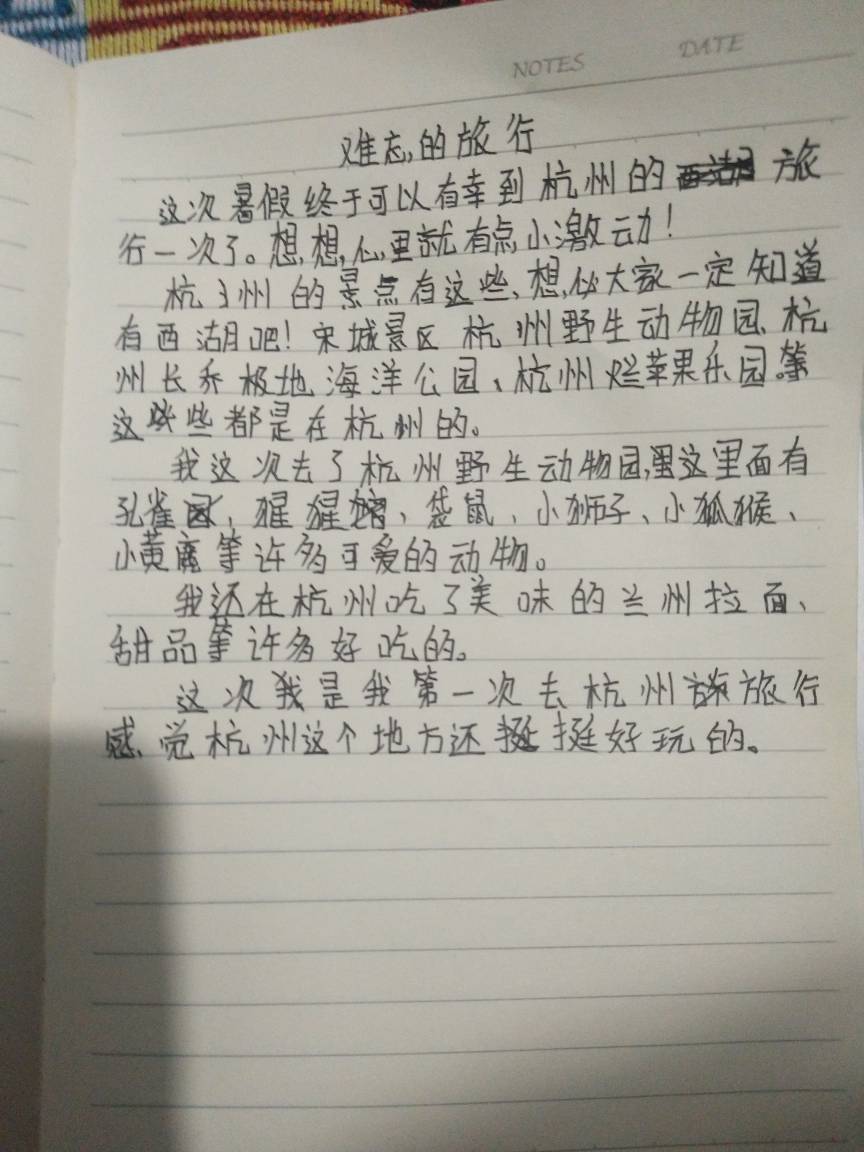 NOTES DATE
难忘的旅行
这次暑假终于可以有幸到杭州的 旅
行一次了。想想,心里就有点小激动!
杭州的景点有这些、想必大家一定知道
有西湖吧!宋城景区 杭州野生动物园、杭
州长乔极地海洋公园、杭州烂苹果乐园。等
这些些都是在杭州的。
我这次去了杭州野生动物园,里这里面有
孔雀、猩猩、袋鼠、小狮子、小狐猴、
小黄鹿等许多可爱的动物。
我还在杭州吃了美味的兰州拉面、
甜品等许多好吃的。
这次我是我第一次去杭州旅行
感觉杭州这个地方还挺挺好玩的。